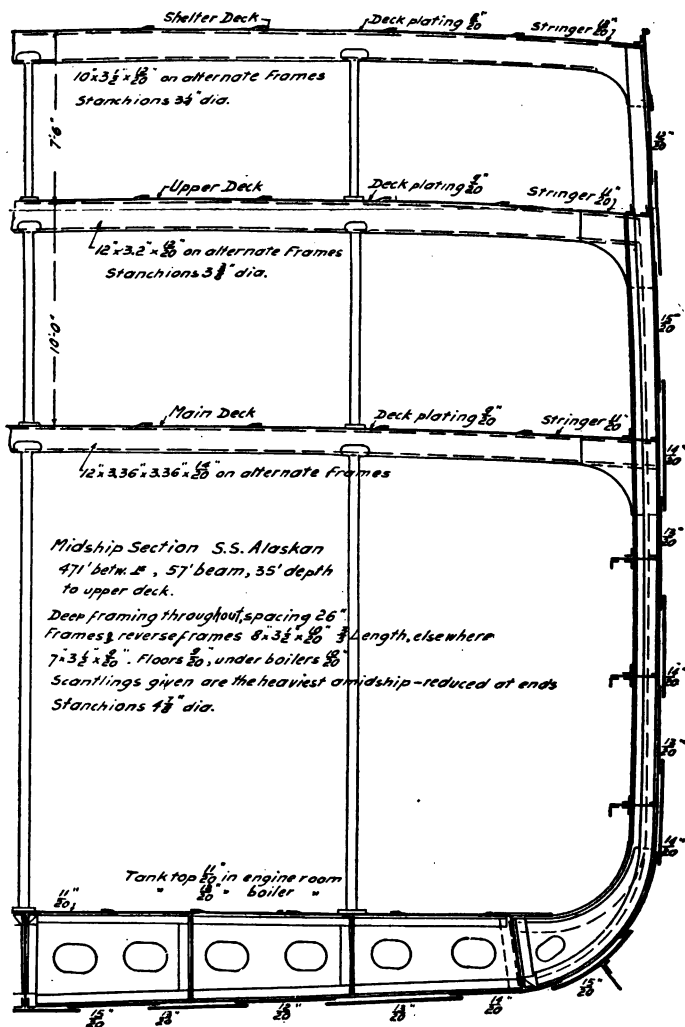 Shelter Deck
Deck plating 8/20"
Stringer
10" x 3 1/2" x 12/20" on alternate Frames
Stanchions dia.
7'-6"
12/20"
Upper Deck
Deck plating 9/20"
Stringer 11/20"
12" x 3.2" x on alternate Frames
Stanchions dia.
10'-0"
15/20"
Main Deck
Deck plating 9/20"
Stringer 11/20"
12" x 3.36" x 3.36" x 14/20" on alternate Frames
14/20"
Midship Section S.S. Alaskan
471' betw. , 57' beam, 35' depth
to upper deck.
13/20"
Deep framing throughout, spacing 26"
Frames & reverse frames 8" x 3 1/2" x 10/20" Length, elsewhere
7" x 3 1/2" x 9/20". Floors 9/20", under boilers
Scantlings given are the heaviest amidship - reduced at ends
Stanchions 4 7/8" dia.
14/20"
13/20"
14/20"
Tank top 11/20" in engine room
" " boiler "
11/20"
15/20"
13/20"
13/20"
14/20"
15/20"